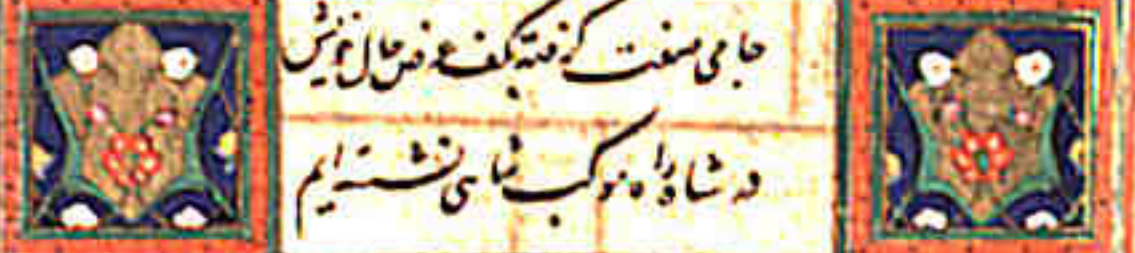 جامی صفت گرفته بکف عرض حال خویش
در شاه راه موکب شاهی نشسته ایم